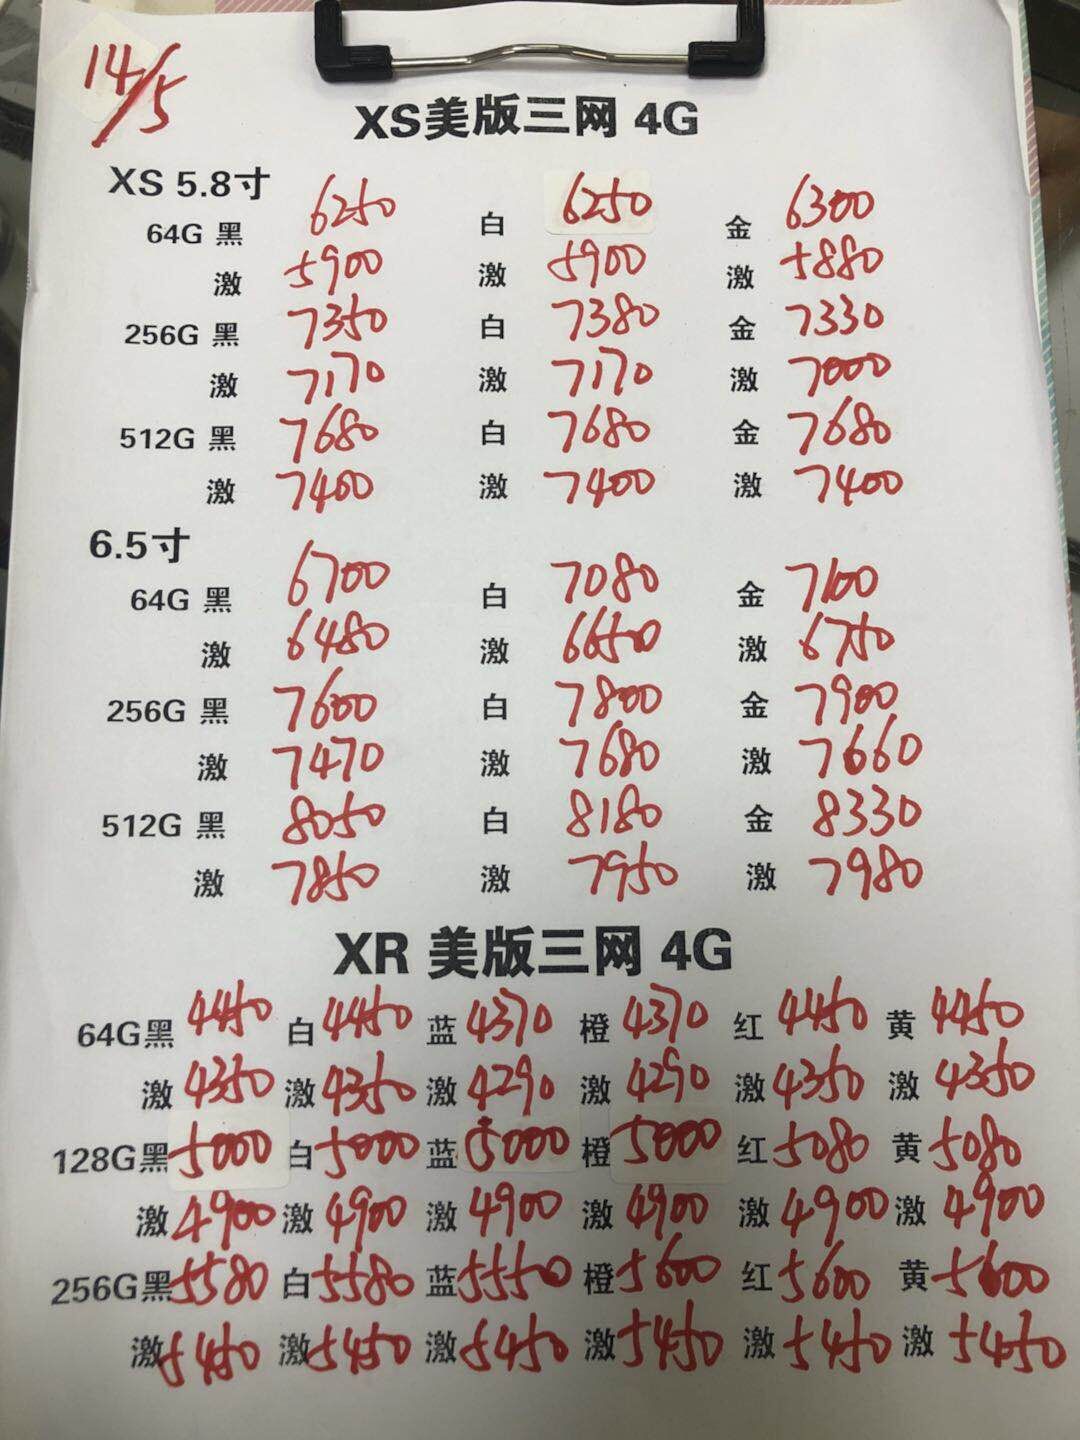 14/5
XS美版三网 4G
XS 5.8寸
64G 黑 6250 白 6250 金 6300
激 5900 激 5900 激 5880
256G 黑 7350 白 7380 金 7330
激 7170 激 7170 激 7000
512G 黑 7680 白 7680 金 7680
激 7400 激 7400 激 7400
6.5寸
64G 黑 6700 白 7080 金 7100
激 6480 激 6650 激 6750
256G 黑 7600 白 7800 金 7900
激 7470 激 7680 激 7660
512G 黑 8050 白 8180 金 8330
激 7850 激 7950 激 7980
XR 美版三网 4G
64G黑 4450 白 4450 蓝 4370 橙 4370 红 4450 黄 4450
激 4350 激 4350 激 4290 激 4290 激 4350 激 4350
128G黑 5000 白 5000 蓝 5000 橙 5000 红 5080 黄 5080
激 4900 激 4900 激 4900 激 4900 激 4900 激 4900
256G黑 5580 白 5580 蓝 5550 橙 5600 红 5600 黄 5600
激 5450 激 5450 激 5450 激 5450 激 5450 激 5450